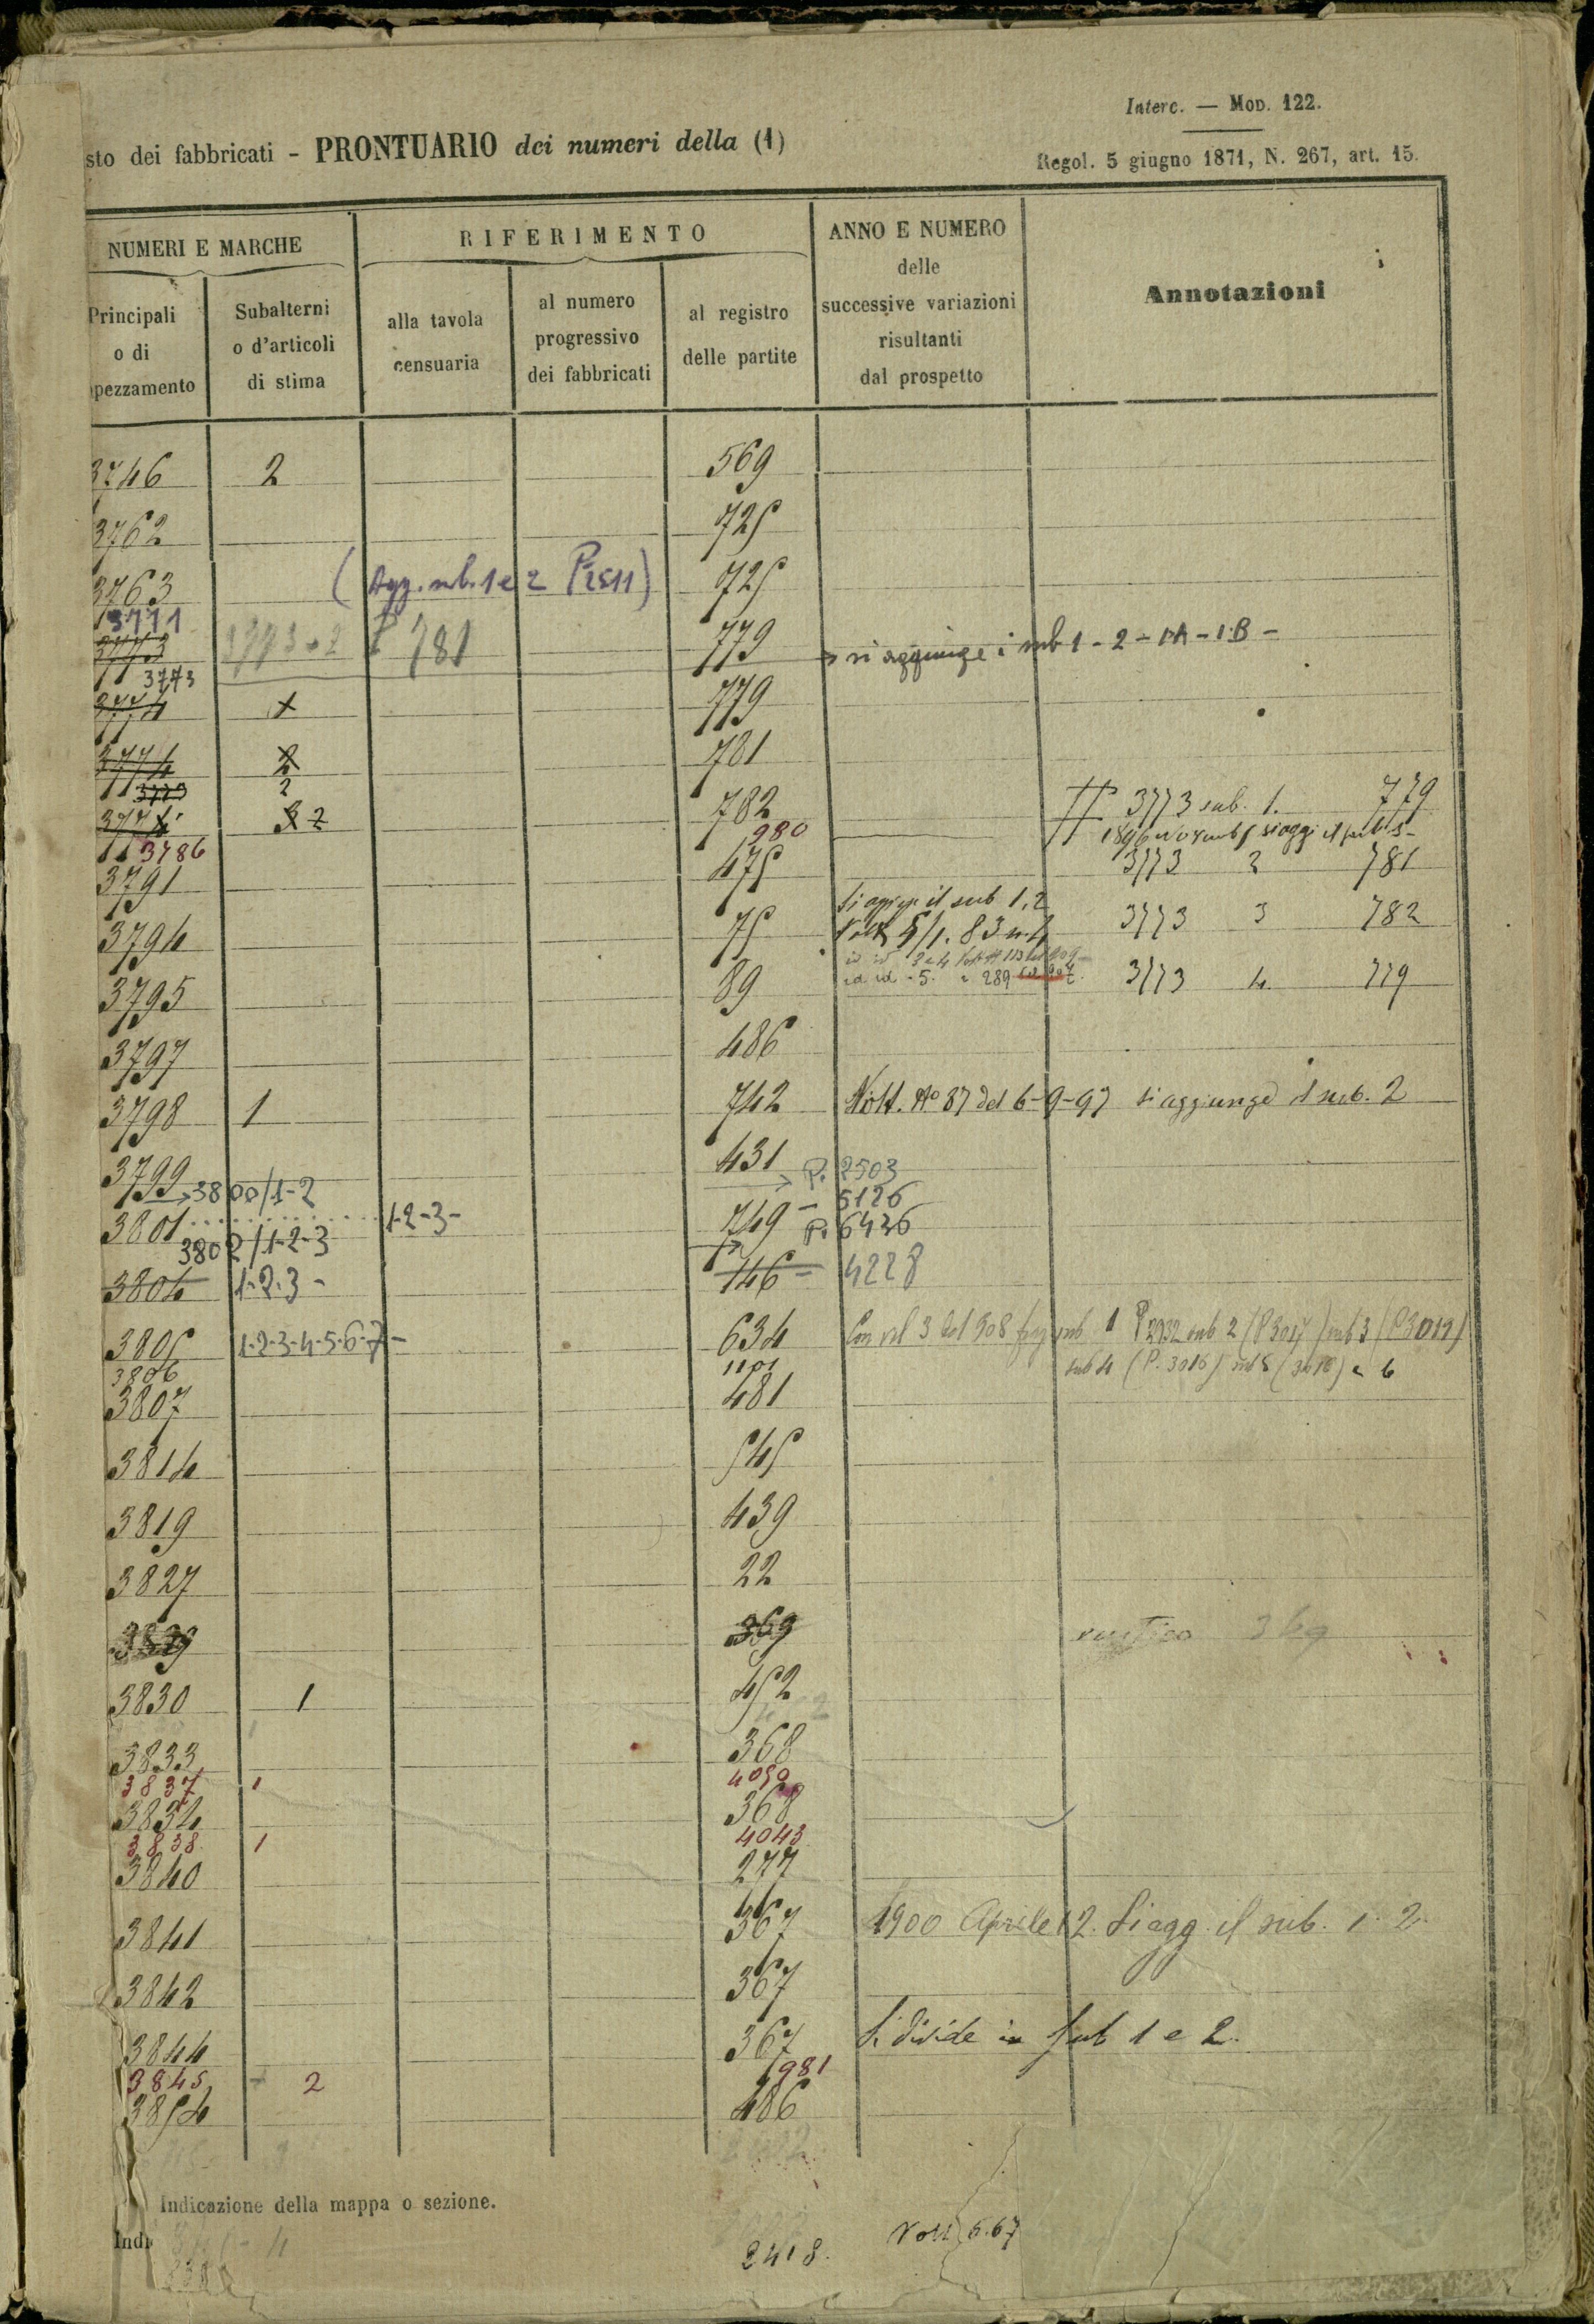 Interc. — Mod. 122.
sto dei fabbricati - PRONTUARIO dei numeri della (1)
Regol. 5 giugno 1871, N. 267, art. 15.
NUMERI E MARCHE
RIFERIMENTO
ANNO E NUMERO
delle
successive variazioni
risultanti
dal prospetto
Annotazioni
Principali
o di
pezzamento
Subalterni
o d'articoli
di stima
alla tavola
censuaria
al numero
progressivo
dei fabbricati
al registro
delle partite
3746 2 569
3762 725
3763 (Agg. sub. 1 e 2 P2511) 725
3771
3773 3773 2 781 779 si aggiunge i sub 1 - 2 - 1A - 1.B -
3773
3774 779
3774 2 781
3773 2
782 3773 sub. 1. 779
3786 980 1896
3791 475 3773 2 781
si aggiunge il sub 1, 2
3794 75 Volt 5/1. 83 n. 4 3773 3 782
id id - 5. 289
3795 89 3773 4 779
3797 486
3798 1 742 Volt. No 87 del 6-9-97 si aggiunge il sub. 2
3799 431 P. 2503
3800/1-2
5126
3801 1-2-3- 749 P. 6436
3802/1-2-3
3804 1-2-3- 746 - 4228
3805 1-2-3-4-5-6-7- 634 sub 1 P 2932 sub 2 (P3017) sub 3 (P3017)
3806 1101 sub 4 (P. 3016) e 6
3807 481
3814 545
3819 439
3827 22
3829 369 rustico
3830 1 452
3833 368
3837 1 4050
3834 368
3838 1 4043
3840 277
3841 367 1900 Aprile 12. Si agg. il sub. 1. 2.
3842 367
3844 367 Si divide in sub 1 e 2.
3845 2 981
3854 486
Indicazione della mappa o sezione.
Indi
2418. Volt 5.67